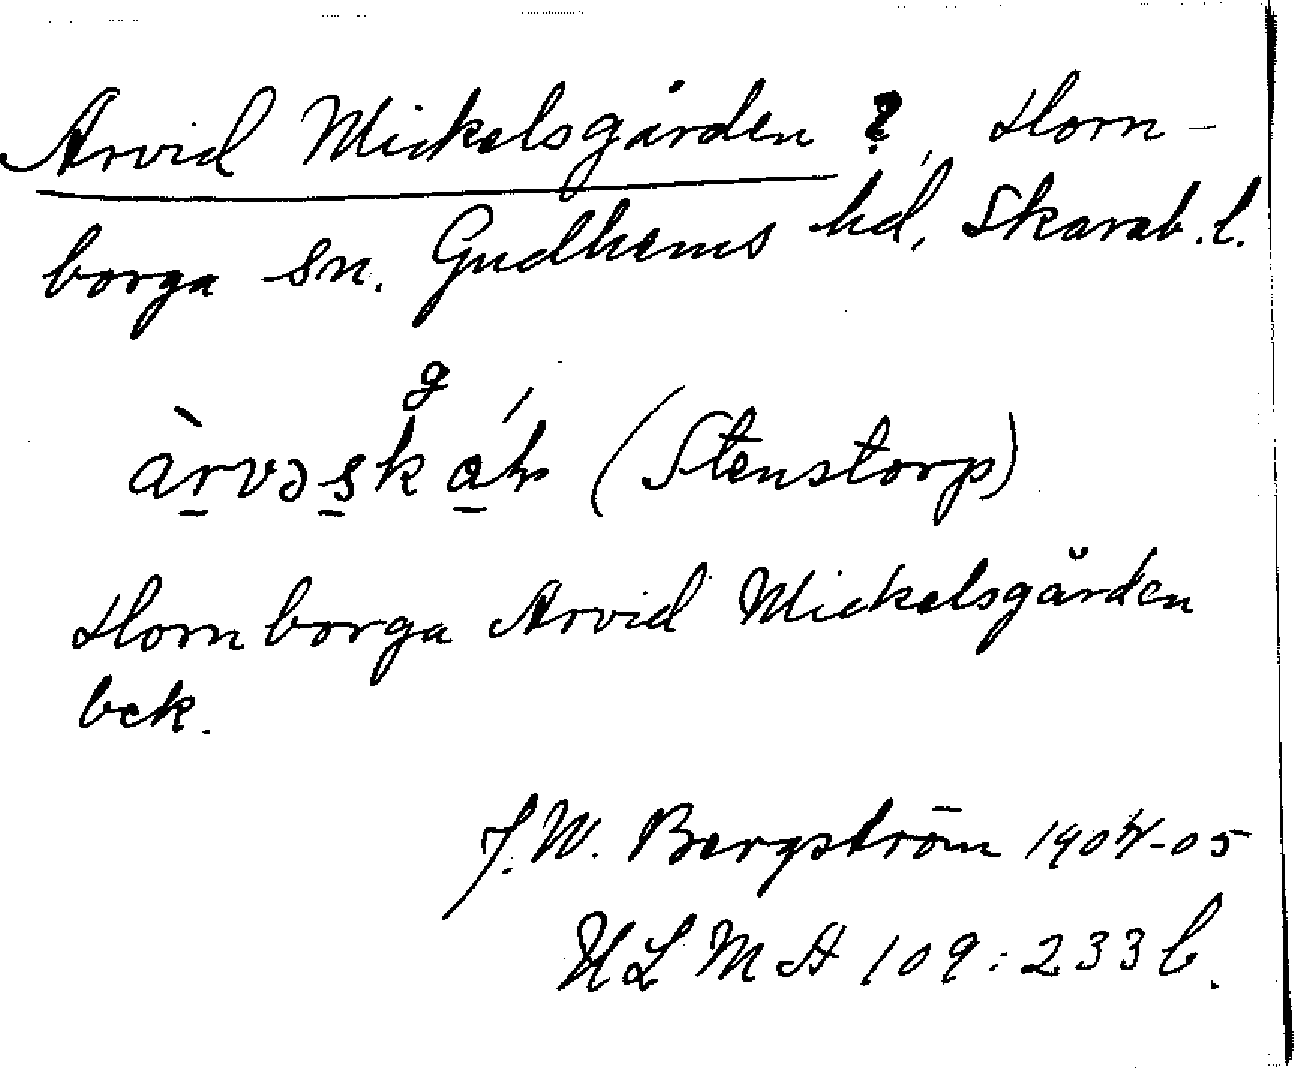 Arvid Mickelsgården ?, Horn-
borga sn. Gudhems hd, Skarab. l.
g
àrvəskáɳ (Stenstorp)
Hornborga Arvid Mickelsgården
bek.
J. W. Bergström 1904-05
ULMA 109:233 b.